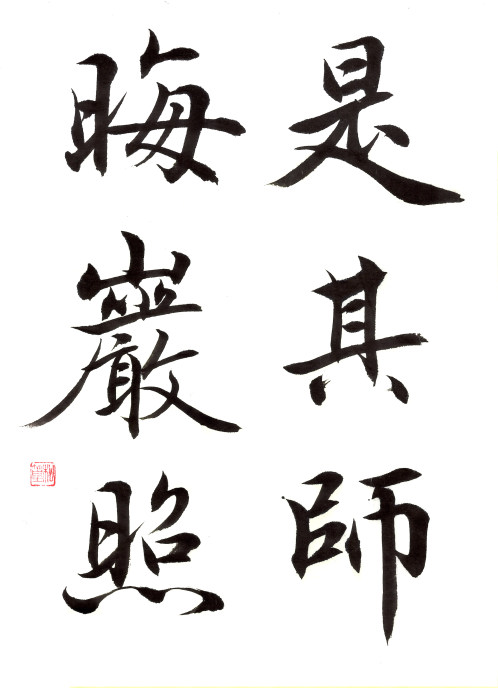 是其師
晦巖照